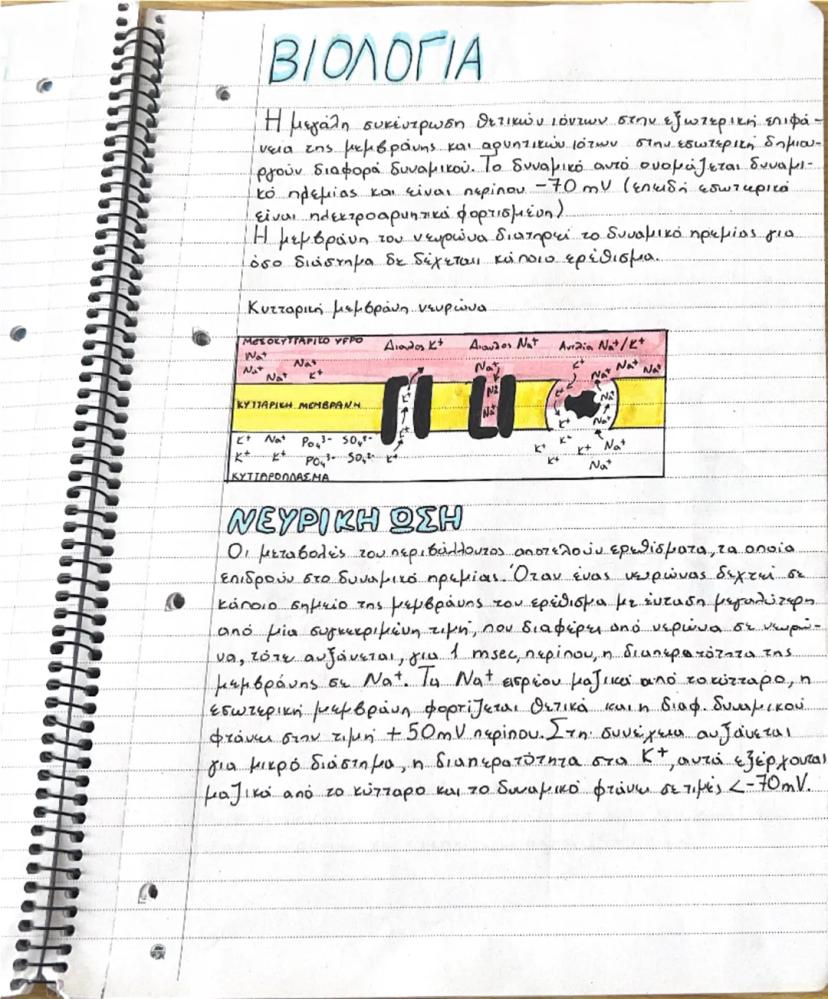 ΒΙΟΛΟΓΙΑ
Η μεγάλη συκέντρωση θετικών ιόντων στην εξωτερική επιφά-
νεια της μεμβράνης και αρνητικών ιότων στην εσωτερική δημιου-
ργούν διαφορά δυναμικού. Το δυναμικό αυτό ονομάζεται δυναμι-
κό ηρεμίας και είναι περίπου -70 mV (επειδή εσωτερικά
είναι ηλεκτροαρνητικά φορτισμένη)
Η μεμβράνη του νευρώνα διατηρεί το δυναμικό ηρεμίας για
όσο διάστημα δε δέχεται κάποιο ερέθισμα.
Κυτταρική μεμβράνη νευρώνα
ΜΕΣΟΚΥΤΤΑΡΙΚΟ ΥΓΡΟ Δίαυλος K⁺ Δίαυλος Na⁺ Αντλία Na⁺/K⁺
Na⁺ Na⁺ Na⁺ K⁺ Na⁺ K⁺ K⁺ Na⁺ Na⁺ Na⁺
ΚΥΤΤΑΡΙΚΗ ΜΕΜΒΡΑΝΗ K⁺ Na⁺ Na⁺ K⁺ K⁺ Na⁺ Na⁺
K⁺ Na⁺ PO₄³⁻ SO₄²⁻ K⁺ K⁺ K⁺ K⁺ Na⁺
K⁺ K⁺ PO₄³⁻ SO₄²⁻ K⁺ K⁺ Na⁺
ΚΥΤΤΑΡΟΠΛΑΣΜΑ
ΝΕΥΡΙΚΗ ΩΣΗ
Οι μεταβολές του περιβάλλοντος αποτελούν ερεθίσματα, τα οποία
επιδρούν στο δυναμικό ηρεμίας. Όταν ένας νευρώνας δεχτεί σε
κάποιο σημείο της μεμβράνης του ερέθισμα με ένταση μεγαλύτερη
από μία συγκεκριμένη τιμή, που διαφέρει από νερώνα σε νευρώ-
να, τότε αυξάνεται, για 1 msec, περίπου, η διαπερατότητα της
μεμβράνης σε Na⁺. Τα Na⁺ εισρέου μαζικά από το κύτταρο, η
εσωτερική μεμβράνη φορτίζεται θετικά και η διαφ. δυναμικού
φτάνει στην τιμή +50mV περίπου. Στη συνέχεια αυξάνεται
για μικρό διάστημα, η διαπερατότητα στα K⁺, αυτά εξέρχονται
μαζικά από το κύτταρο και το δυναμικό φτάνει σε τιμές <-70mV.